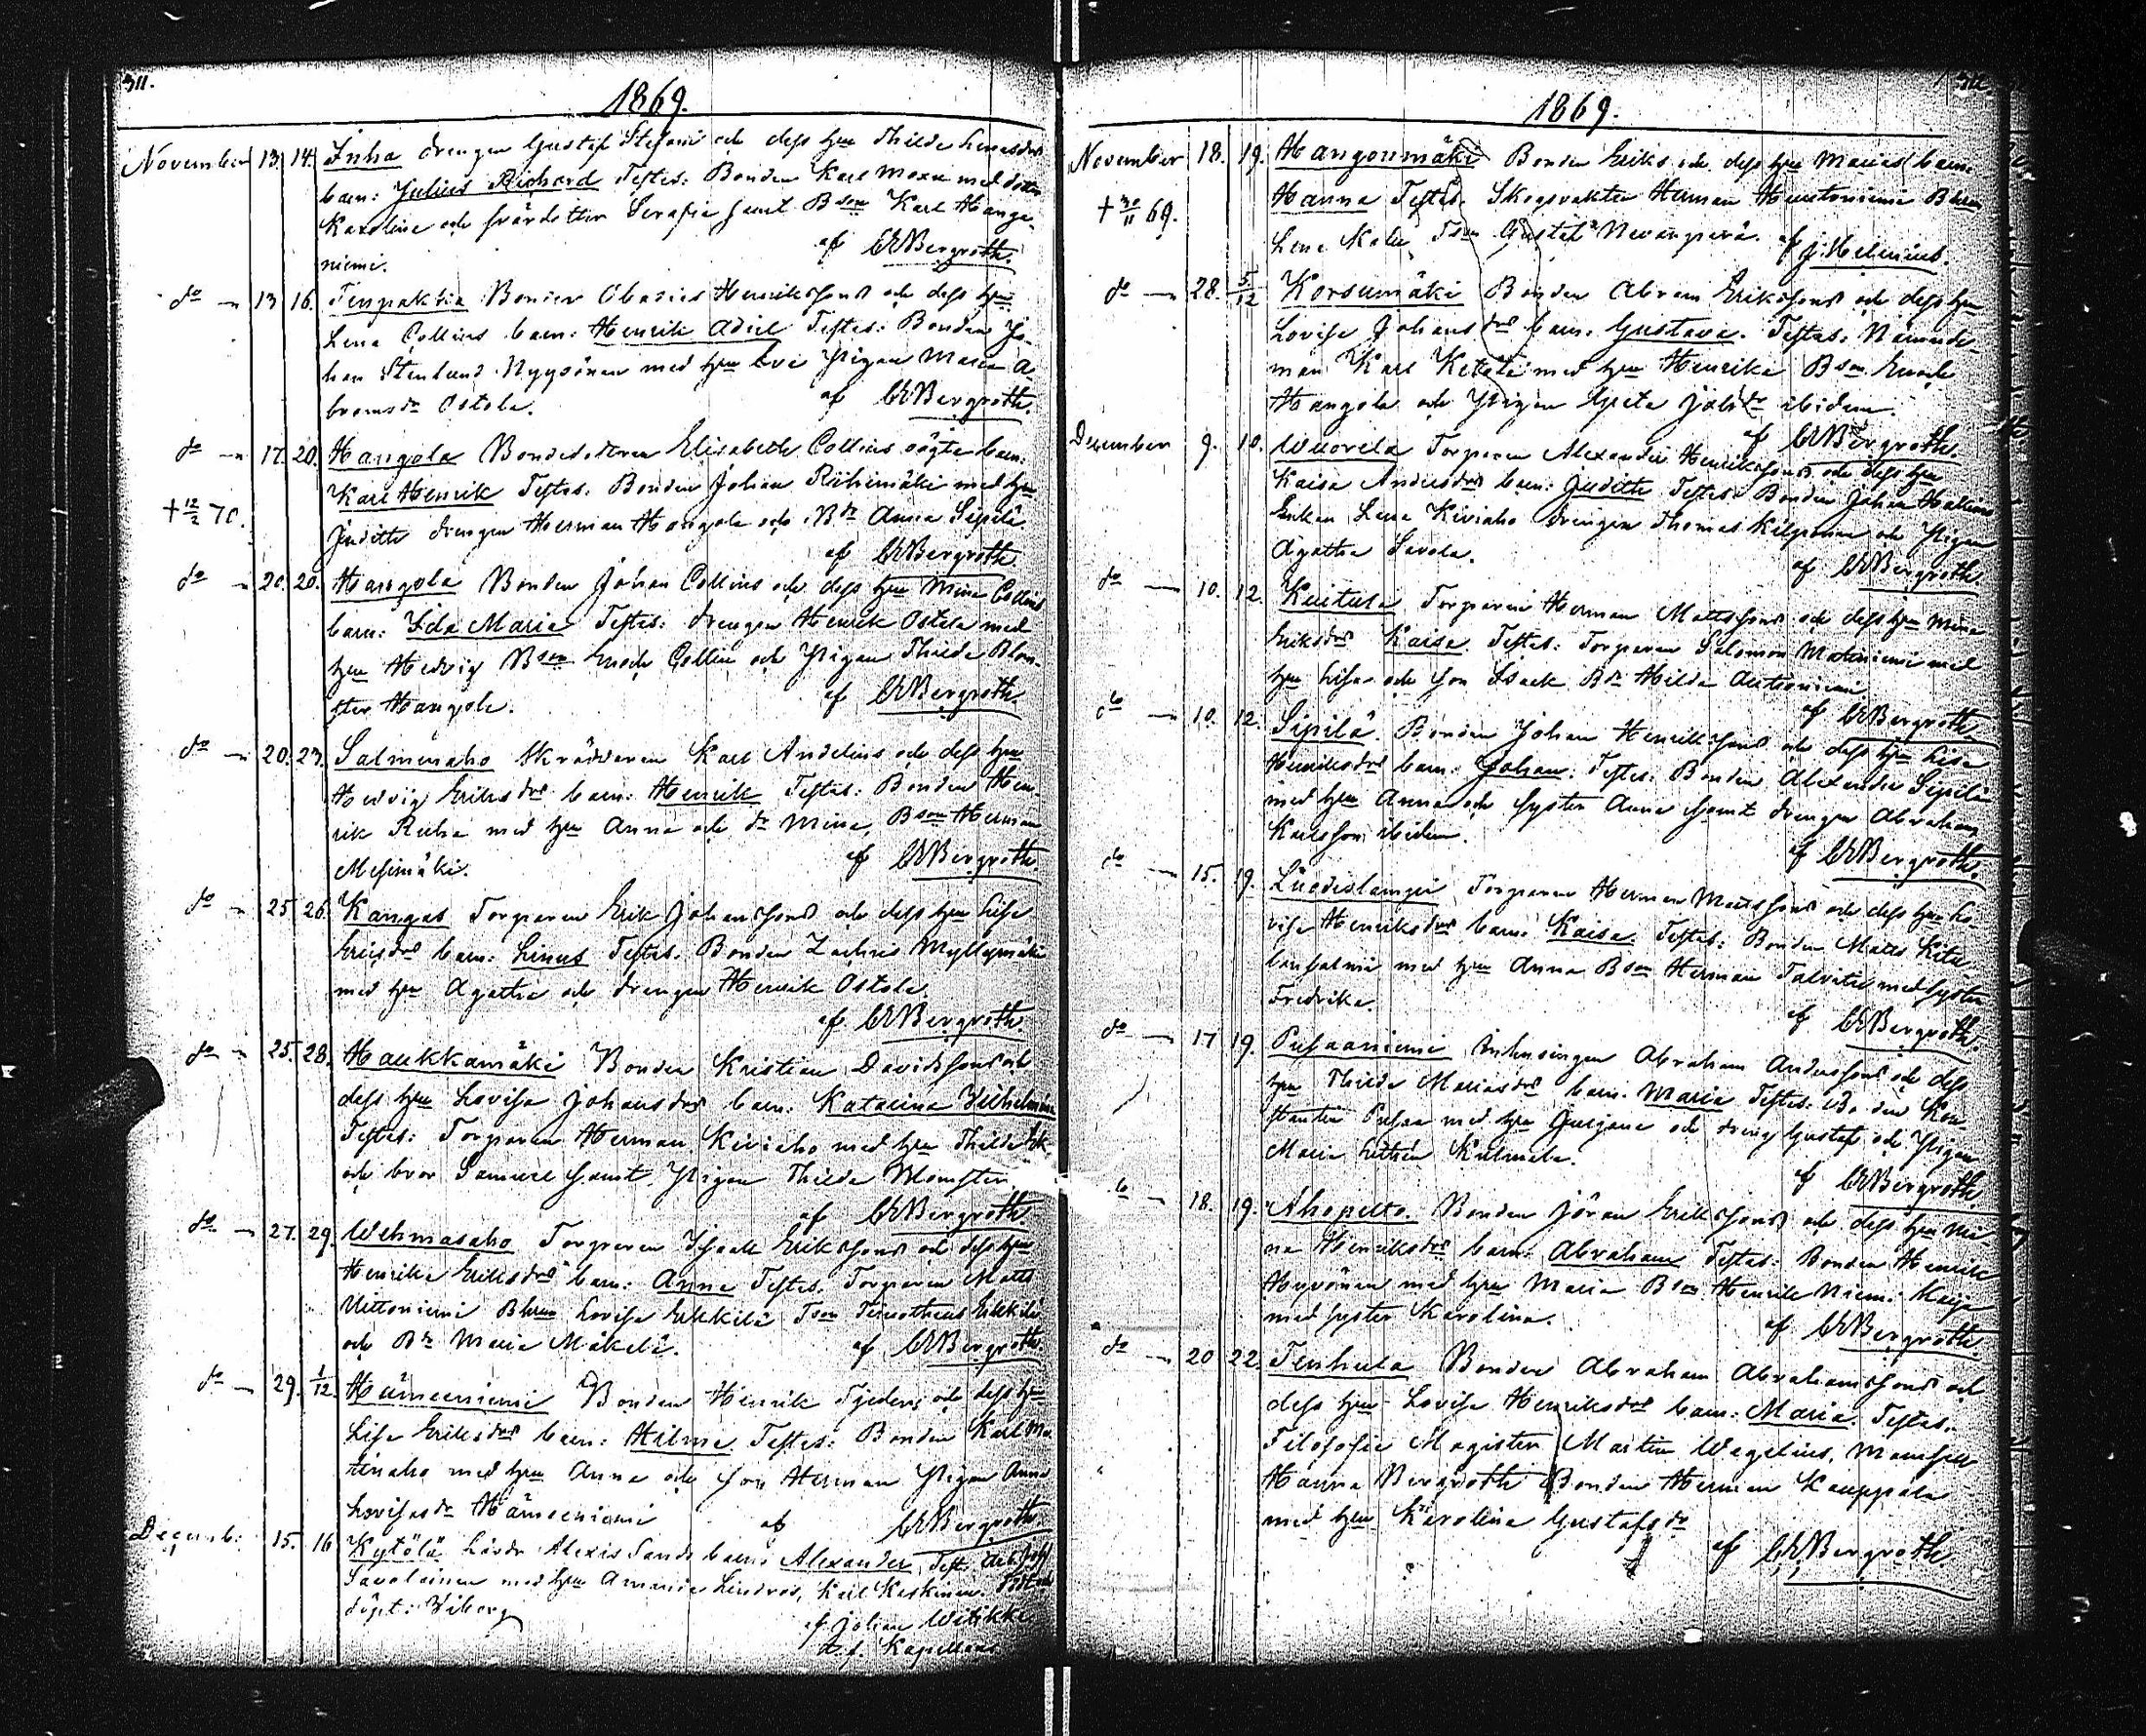 311.
1869.
November 13. 14. Inha drengen Gustaf Stefani och dess hu Thilda
barn: Julius Richard Testes: Bonden Karl Moxu med doter
Karolina och svärdotter Serafia samt Bson Karl Hanga-
niemi. af CEBergroth.
do 13 16. Tenpakka Bonden Obasies Henrikssons och dess hu
Lena Collins barn: Henrik Adiel Testes: Bonden Jo-
han Stenlund Nyysönen med hu Eva Pigan Maria A-
bramsdr Ostola. af CEBergroth.
do 17. 20. Hangola Bondedottren Elisabeth Collins oägta barn:
Karl Henrik Testes: Bonden Johan Riihimäki med hu
+ 12/2 70. Judith drengen Herman Hangola och Bdr Anna Sipilä.
af CEBergroth
do 20. 20. Hangola Bonden Johan Collins och dess hu Mina Collins
barn: Ida Maria Testes: drengen Henrik Ostola med
hu Hedvig Bson Enoch Collin och Pigan Thilda Blom-
ster Hangola. af CEBergroth.
do 20. 23. Salmenaho Skräddaren Karl Andelins och dess hu
Hedvig Eriksdrs barn: Henrik Testes: Bonden Hen-
rik Riiha med hu Anna och dr Mina, Bson Herman
Mesimäki. af CEBergroth.
do 25 26. Kangas Torparen Erik Johanssons och dess hu Lisa
Eriksdrs barn: Linus Testes: Bonden Zachris Myllymäki
med hu Agatha och drengen Henrik Ostola.
af CEBergroth
do 25. 28. Haukkamäki Bonden Kristian Davidssons och
dess hu Lovisa Johansdrs barn: Katarina Wilhelmina
Testes: Torparen Herman Kiviaho med hu Thilda
och bror Samuel samt Pigan Thilda Blomster.
af CEBergroth.
do 27. 29. Wehmasaho Torparen Isaak Erikssons och dess hu
Henrika Eriksdrs barn: Anna Testes: Torparen Matts
Uittoniemi Bhun Lovisa Erkkilä Tson Timotheus Erkkilä
och Bdr Maria Mäkelä. af CEBergroth.
do 29. 1/12. Hämeeniemi Bonden Henrik Tjeders och dess hu
Lisa Eriksdrs barn: Hilma. Testes: Bonden Karl Ma-
tinaho med hu Anna och son Herman Pigan Anna
Lovisasdr Hämeeniemi af CEBergroth.
Decemb: 15. 16 Kytölä Alexis Sands barn: Alexander Test.
Savolainen med hu Amanda Lindroos, Karl Koskinen.
döpt i Viborg
af Johan Witikka
Kapellans
1869.
November 18. 19. Hangonmäki Bonden Eriks och dess hu Marias barn:
+ 30/11 69. Hanna Testes. Skogsvakten Herman Huutoniemi Bhun
Lena Kale Tson Gustaf Nevanperä. af J. Helenius.
do 28. 5/12 Korsumäki Bonden Abram Erikssons och dess hu
Lovisa Johansdrs barn: Gustava. Testes: Nämnde-
man Karl Ketola med hu Henrika Bson Enoch
Hangola och Pigan Greta Johsdr ibidem.
af CEBergroth.
December 9. 10. Wuorela Torparen Alexander Henrikssons och dess hu
Kaisa Andersdrs barn: Judith Testes: Bonden Johan
Enkan Lena Kiviaho drengen Thomas Kilponen och Pigan
Agatha Savola.
af CEBergroth
do 10. 12. Kuitula Torparen Herman Mattssons och dess hu Mina
Eriksdrs Kaisa. Testes: Torparen Salomon Matinniemi med
hu Lisa och son Isaak Bdr Hilda Autioniemi.
af CEBergroth
do 10. 12. Sipilä Bonden Johan Henrikssons och dess hu Lisa
Henriksdrs barn: Johan: Testes: Bonden Alexander Sipilä
med hu Anna och syster Anna samt drengen Abraham
Karlsson ibidem.
af CEBergroth.
do 15. 19. Liedeslampi Torparen Herman Mattssons och dess hu Lo-
visa Henriksdrs barn: Kaisa. Testes: Bonden Matts Kitu-
lansalmi med hu Anna Bson Herman Talvitie med syster
Fredrika.
af CEBergroth.
do 17 19. Pusaaniemi Inhusingen Abraham Anderssons och dess
hu Thilda Mariasdrs barn: Maria Testes: Bonden Kon-
stantin Pusaa med hu Gustava och dreng Gustaf och Pigan
Maria Kulmala.
af CEBergroth.
do 18. 19. Ahopelto. Bonden Jöran Erikssons och dess hu Mi-
na Henriksdrs barn: Abraham Testes: Bonden Henrik
Hyvönen med hu Maria Bson Henrik Niemi Maija
med syster Karolina.
af CEBergroth.
do 20 22. Tenhula Bonden Abraham Abrahamssons och
dess hu Lovisa Henriksdrs barn: Maria. Testes.
Filosofie Magister Martin Wegelius, Mamsell
Hanna Bergroth Bonden Herman Kauppala
med hu Karolina Gustafsdr
af CEBergroth